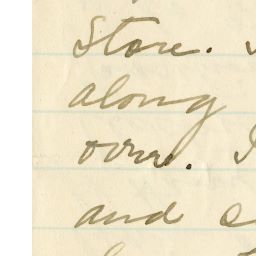 Store.
along
over.
and